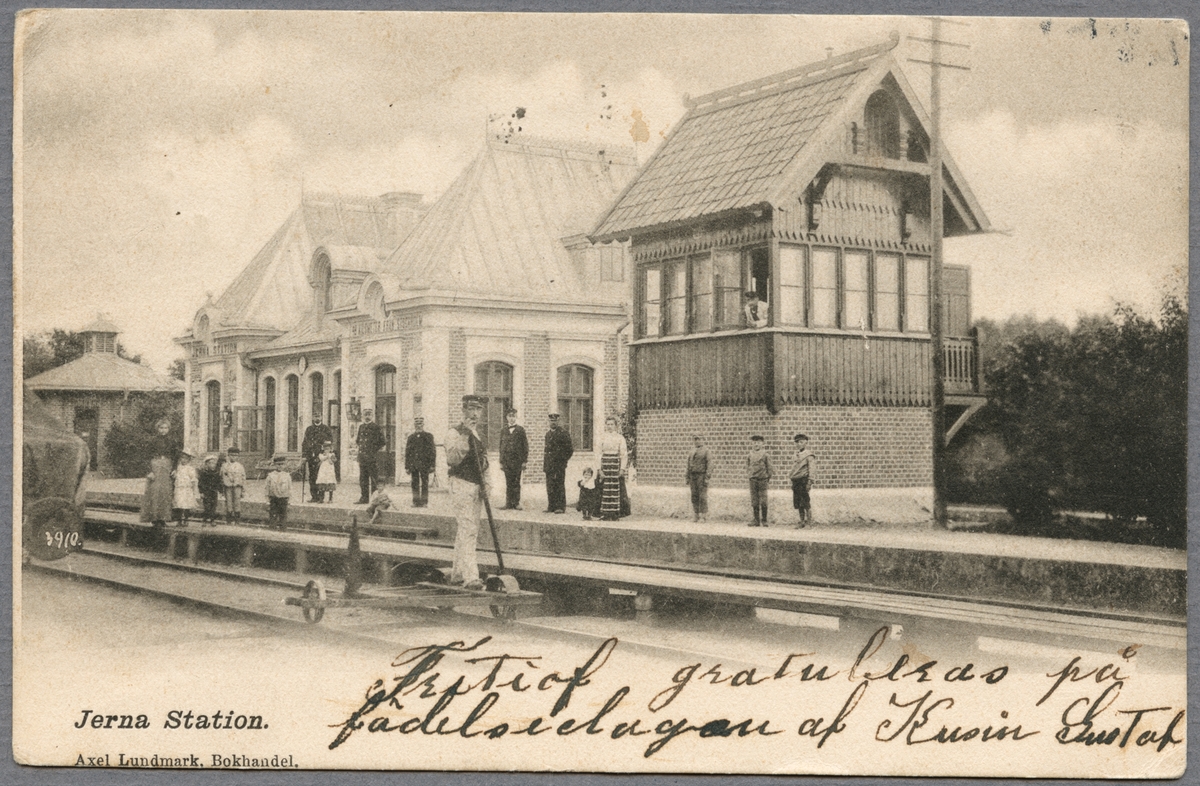 3910.
Jerna Station.
Axel Lundmark, Bokhandel.
Fritiof gratuleras på
födelsedagen af Kusin Gustaf